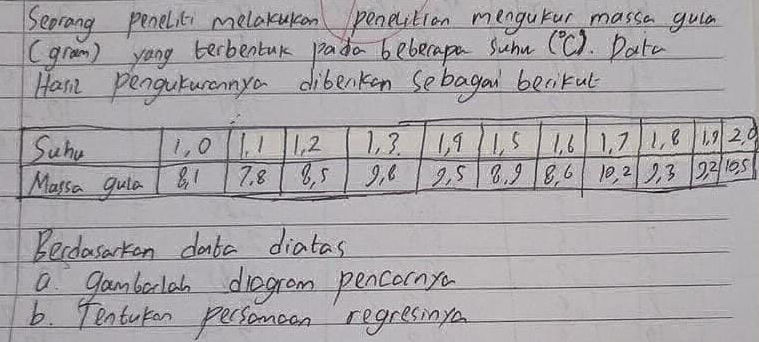 Seorang peneliti melakukan penelitian mengukur massa gula
(gram) yang terbentuk pada beberapa suhu (°C). Data
Hasil pengukurannya diberikan sebagai berikut
Suhu 1,0 1,1 1,2 1,3 1,4 1,5 1,6 1,7 1,8 1,9 2,0
Massa gula 8,1 7,8 8,5 9,8 9,5 8,9 8,6 10,2 9,3 9,2 10,5
Berdasarkan data diatas
a. gambarlah diagram pencarnya
b. Tentukan persamaan regresinya